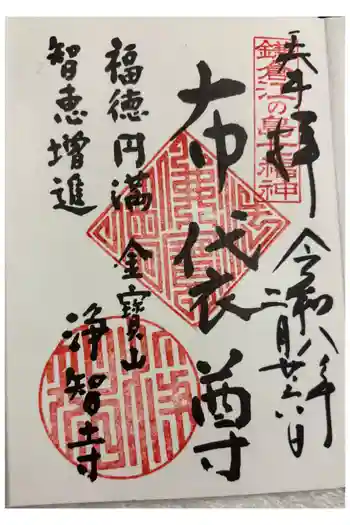 奉拝
鎌倉江の島七福神
令和八年
二月廿六日
布袋尊
福徳円満
智恵増進
金寳山
浄智寺